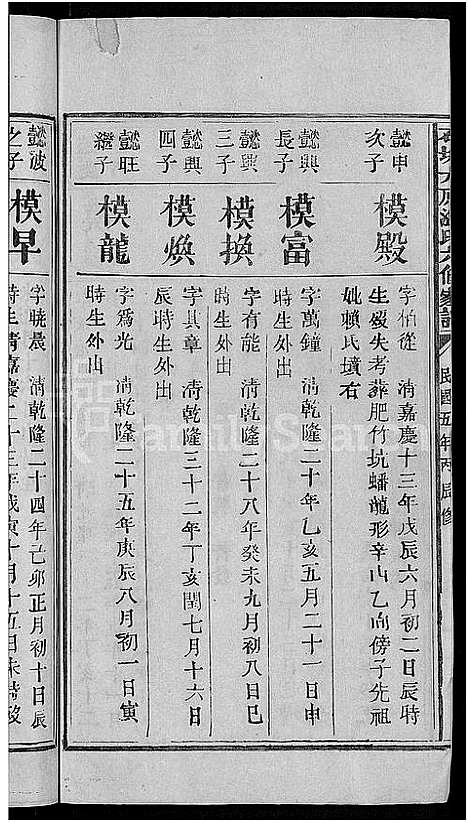 氏六修家譜
民國五年丙辰修
懿申
次子
模殿
字伯從 清嘉慶十三年戊辰六月初二日辰時
生歿失考葬肥竹坑蟠龍形辛山乙向傍子先祖
妣賴氏墳右
懿興
長子
模富
字萬鐘 清乾隆二十年乙亥五月二十一日申
時生外出
懿興
三子
模換
字有能 清乾隆二十八年癸未九月初八日巳
時生外出
懿興
四子
模煥
字其章 清乾隆三十二年丁亥閏七月十六日
辰時生外出
懿旺
繼子
模龍
字為光 清乾隆二十五年庚辰八月初一日寅
時生外出
懿波
之子
模早
字曉晨 清乾隆二十四年己卯正月初十日辰
時生清嘉慶二十三年戊寅十月十五日未時歿